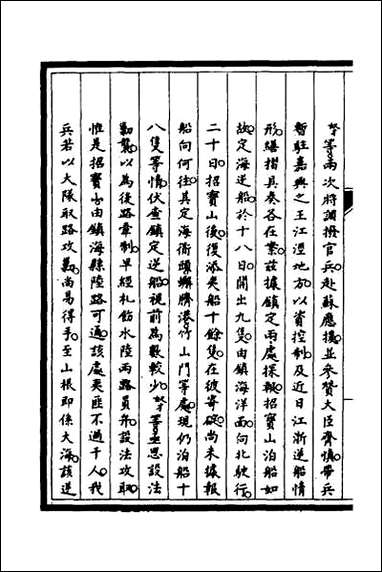 等兩次將調撥官兵赴蘇應援並參贊大臣齊慎帶兵
暫駐嘉興之王江涇地方以資控制及近日江浙逆船情
形繕摺具奏各在案茲據鎮定兩處探報招寶山泊船如
故定海逆船於十八日開出九隻由鎮海洋面向北駛行
二十日招寶山後復添夷船十餘隻在彼寄碇尚未據報
船向何往其定海衜頭蠏臍港竹山門等處現仍泊船十
八隻等情伏查鎮定逆船視前為數較少等亟思設法
勦襲以為後路牽制早經札飭水陸兩路員弁設法攻取
惟是招寶山由鎮海縣陸路可通該處夷匪不過千人我
兵若以大隊取路攻勦尚易得手至山根即係大海該逆